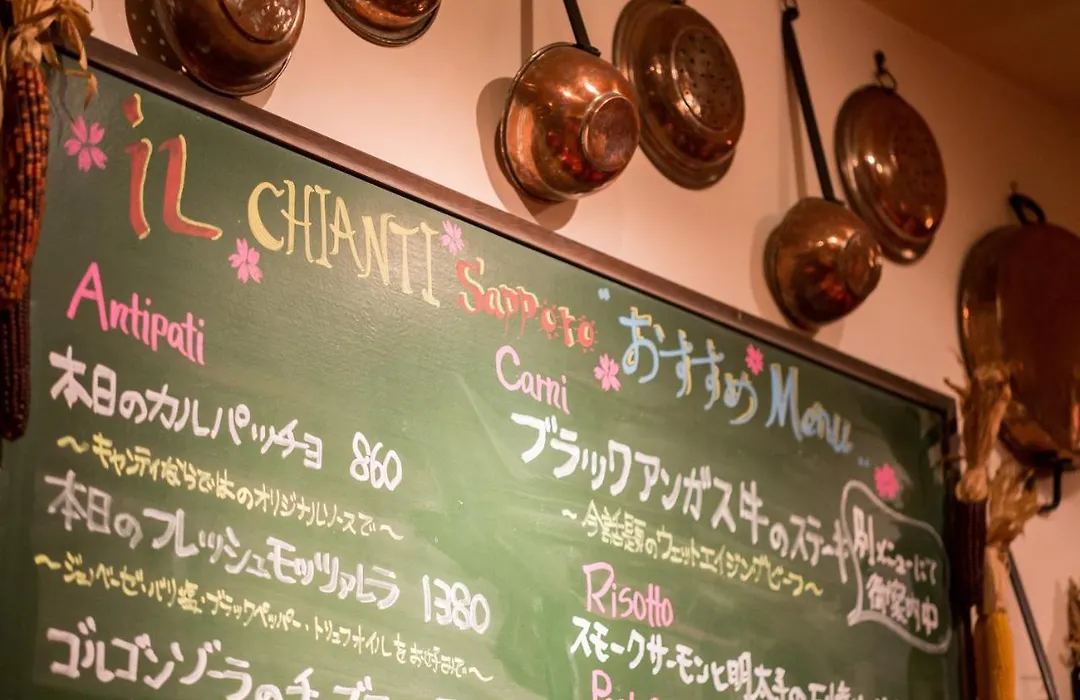 iL CHIANTI Sapporo "おすすめ Menu"
Antipati
本日のカルパッチョ 860
～キャンティならではのオリジナルソースで～
本日のフレッシュモッツァレラ 1380
～ジェノベーゼ・バリ塩・ブラックペッパー・トリュフオイルをお好みで～
ゴルゴンゾーラのチ
Carni
ブラックアンガス牛のステーキ
～今話題のウェットエイジングビーフ～
別メニューにて
御案内中
Risotto
スモークサーモンと明太子の